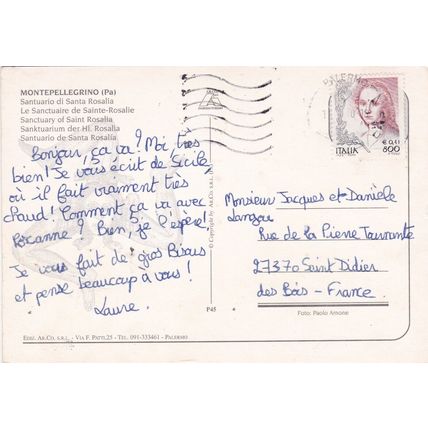 MONTEPELLEGRINO (Pa)
Santuario di Santa Rosalia
Le Sanctuaire de Sainte-Rosalie
Sanctuary of Saint Rosalia
Sanktuarium der Hl. Rosalia
Santuario de Santa Rosalía
Bonjour, ça va? Moi très
bien! Je vous écrit de Sicile,
où il fait vraiment très
chaud! Comment ça va avec
Roxanne? Bien, je l'espère!
Je vous fait de gros Bisous
et pense beaucoup à vous!
Laure.
© Copyright by Ar.Co. s.r.l.
P45
PALERMO
ITALIA
€ 0,41
800
Monsieur Jacques et Danièle
Rue de la Pierre Tournante
27370 Saint Didier
des Bois - France.
Foto: Paolo Amone
Ediz. Ar.Co. s.r.l. - Via F. Patti,25 - Tel. 091-333461 - Palermo